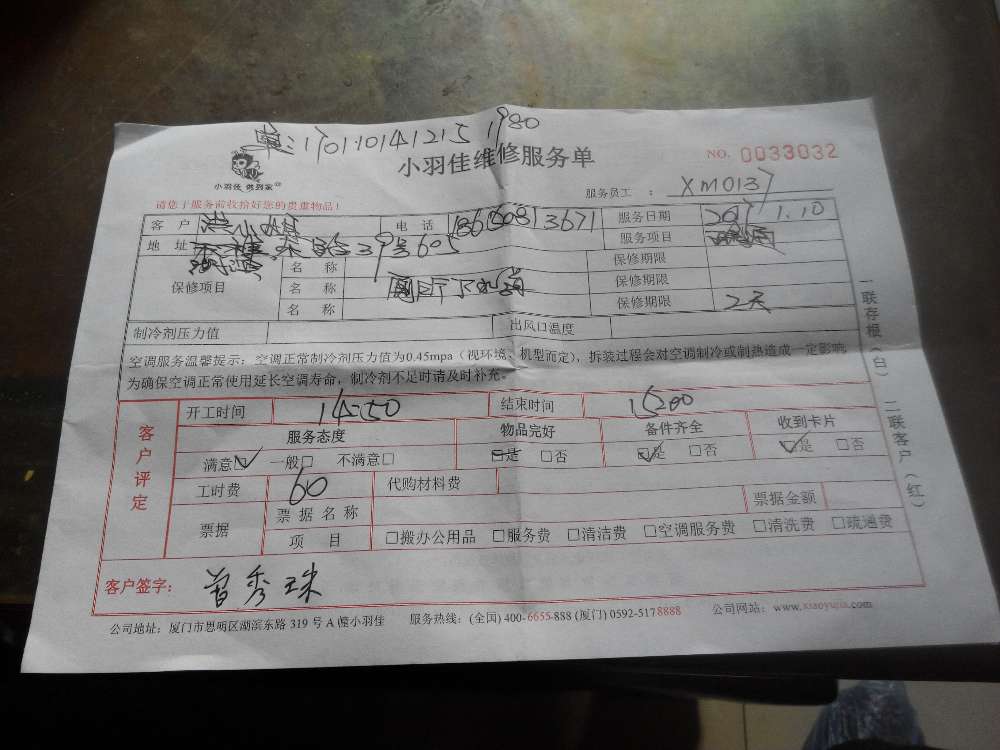 单:1701101412151980
小羽佳 做到家
小羽佳维修服务单
NO. 0033032
请您于服务前收拾好您的贵重物品!
服务员工 : XM0137
客 户 电 话 服务日期 2017.1.10
地 址 39号605 服务项目
保修项目 名 称 保修期限
名 称 下水道 保修期限
名 称 保修期限 2天
制冷剂压力值 出风口温度
空调服务温馨提示:空调正常制冷剂压力值为0.45mpa(视环境、机型而定),拆装过程会对空调制冷或制热造成一定影响
为确保空调正常使用延长空调寿命,制冷剂不足时请及时补充。
客户评定
开工时间 14:50 结束时间 15:00
服务态度 物品完好 备件齐全 收到卡片
满意□ 一般□ 不满意□ □是 □否 □是 □否 □是 □否
工时费 60 代购材料费
票据 票 据 名 称 票据金额
项 目 □搬办公用品 □服务费 □清洁费 □空调服务费 □清洗费 □疏通费
客户签字: 曾秀珠
公司地址:厦门市思明区湖滨东路 319 号 A 幢小羽佳 服务热线:(全国) 400-6655-888 (厦门) 0592-5178888 公司网站:www.xiaoyujia.com
一联存根(白) 二联客户(红)